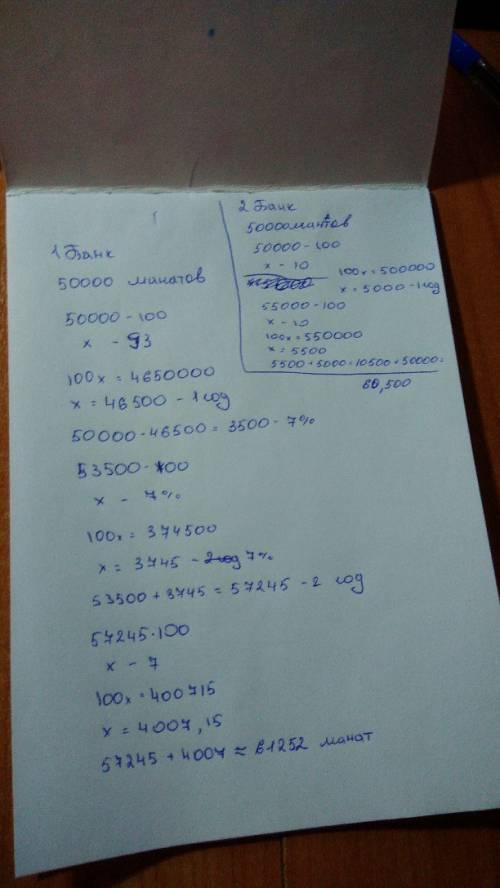 1 Банк
50000 манатов
50000 - 100
x - 93
100x = 4650000
x = 46500 - 1 год
50000 - 46500 = 3500 - 7%
53500 - 100
x - 7%
100x = 374500
x = 3745 - 7%
53500 + 3745 = 57245 - 2 год
57245 - 100
x - 7
100x = 400715
x = 4007,15
57245 + 4007 ≈ 61252 манат
2 Банк
50000 манатов
50000 - 100
x - 10
100x = 500000
x = 5000 - 1 год
55000 - 100
x - 10
100x = 550000
x = 5500
5500 + 5000 = 10500 + 50000 =
60,500